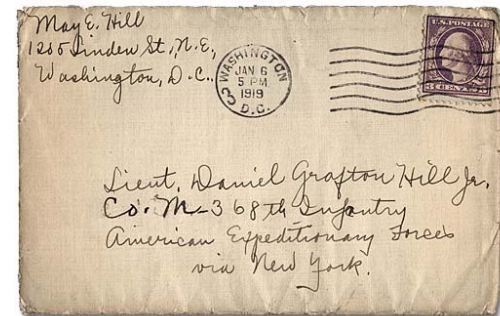 May E. Hill
1205 Linden St., N.E.,
Washington, D.C.,
WASHINGTON
JAN 6
5 PM
1919
3 D.C.
U.S. POSTAGE
3 CENTS 3
Lieut. Daniel Grafton Hill Jr.
Co. M-368th Infantry
American Expeditionary Forces
via New York.